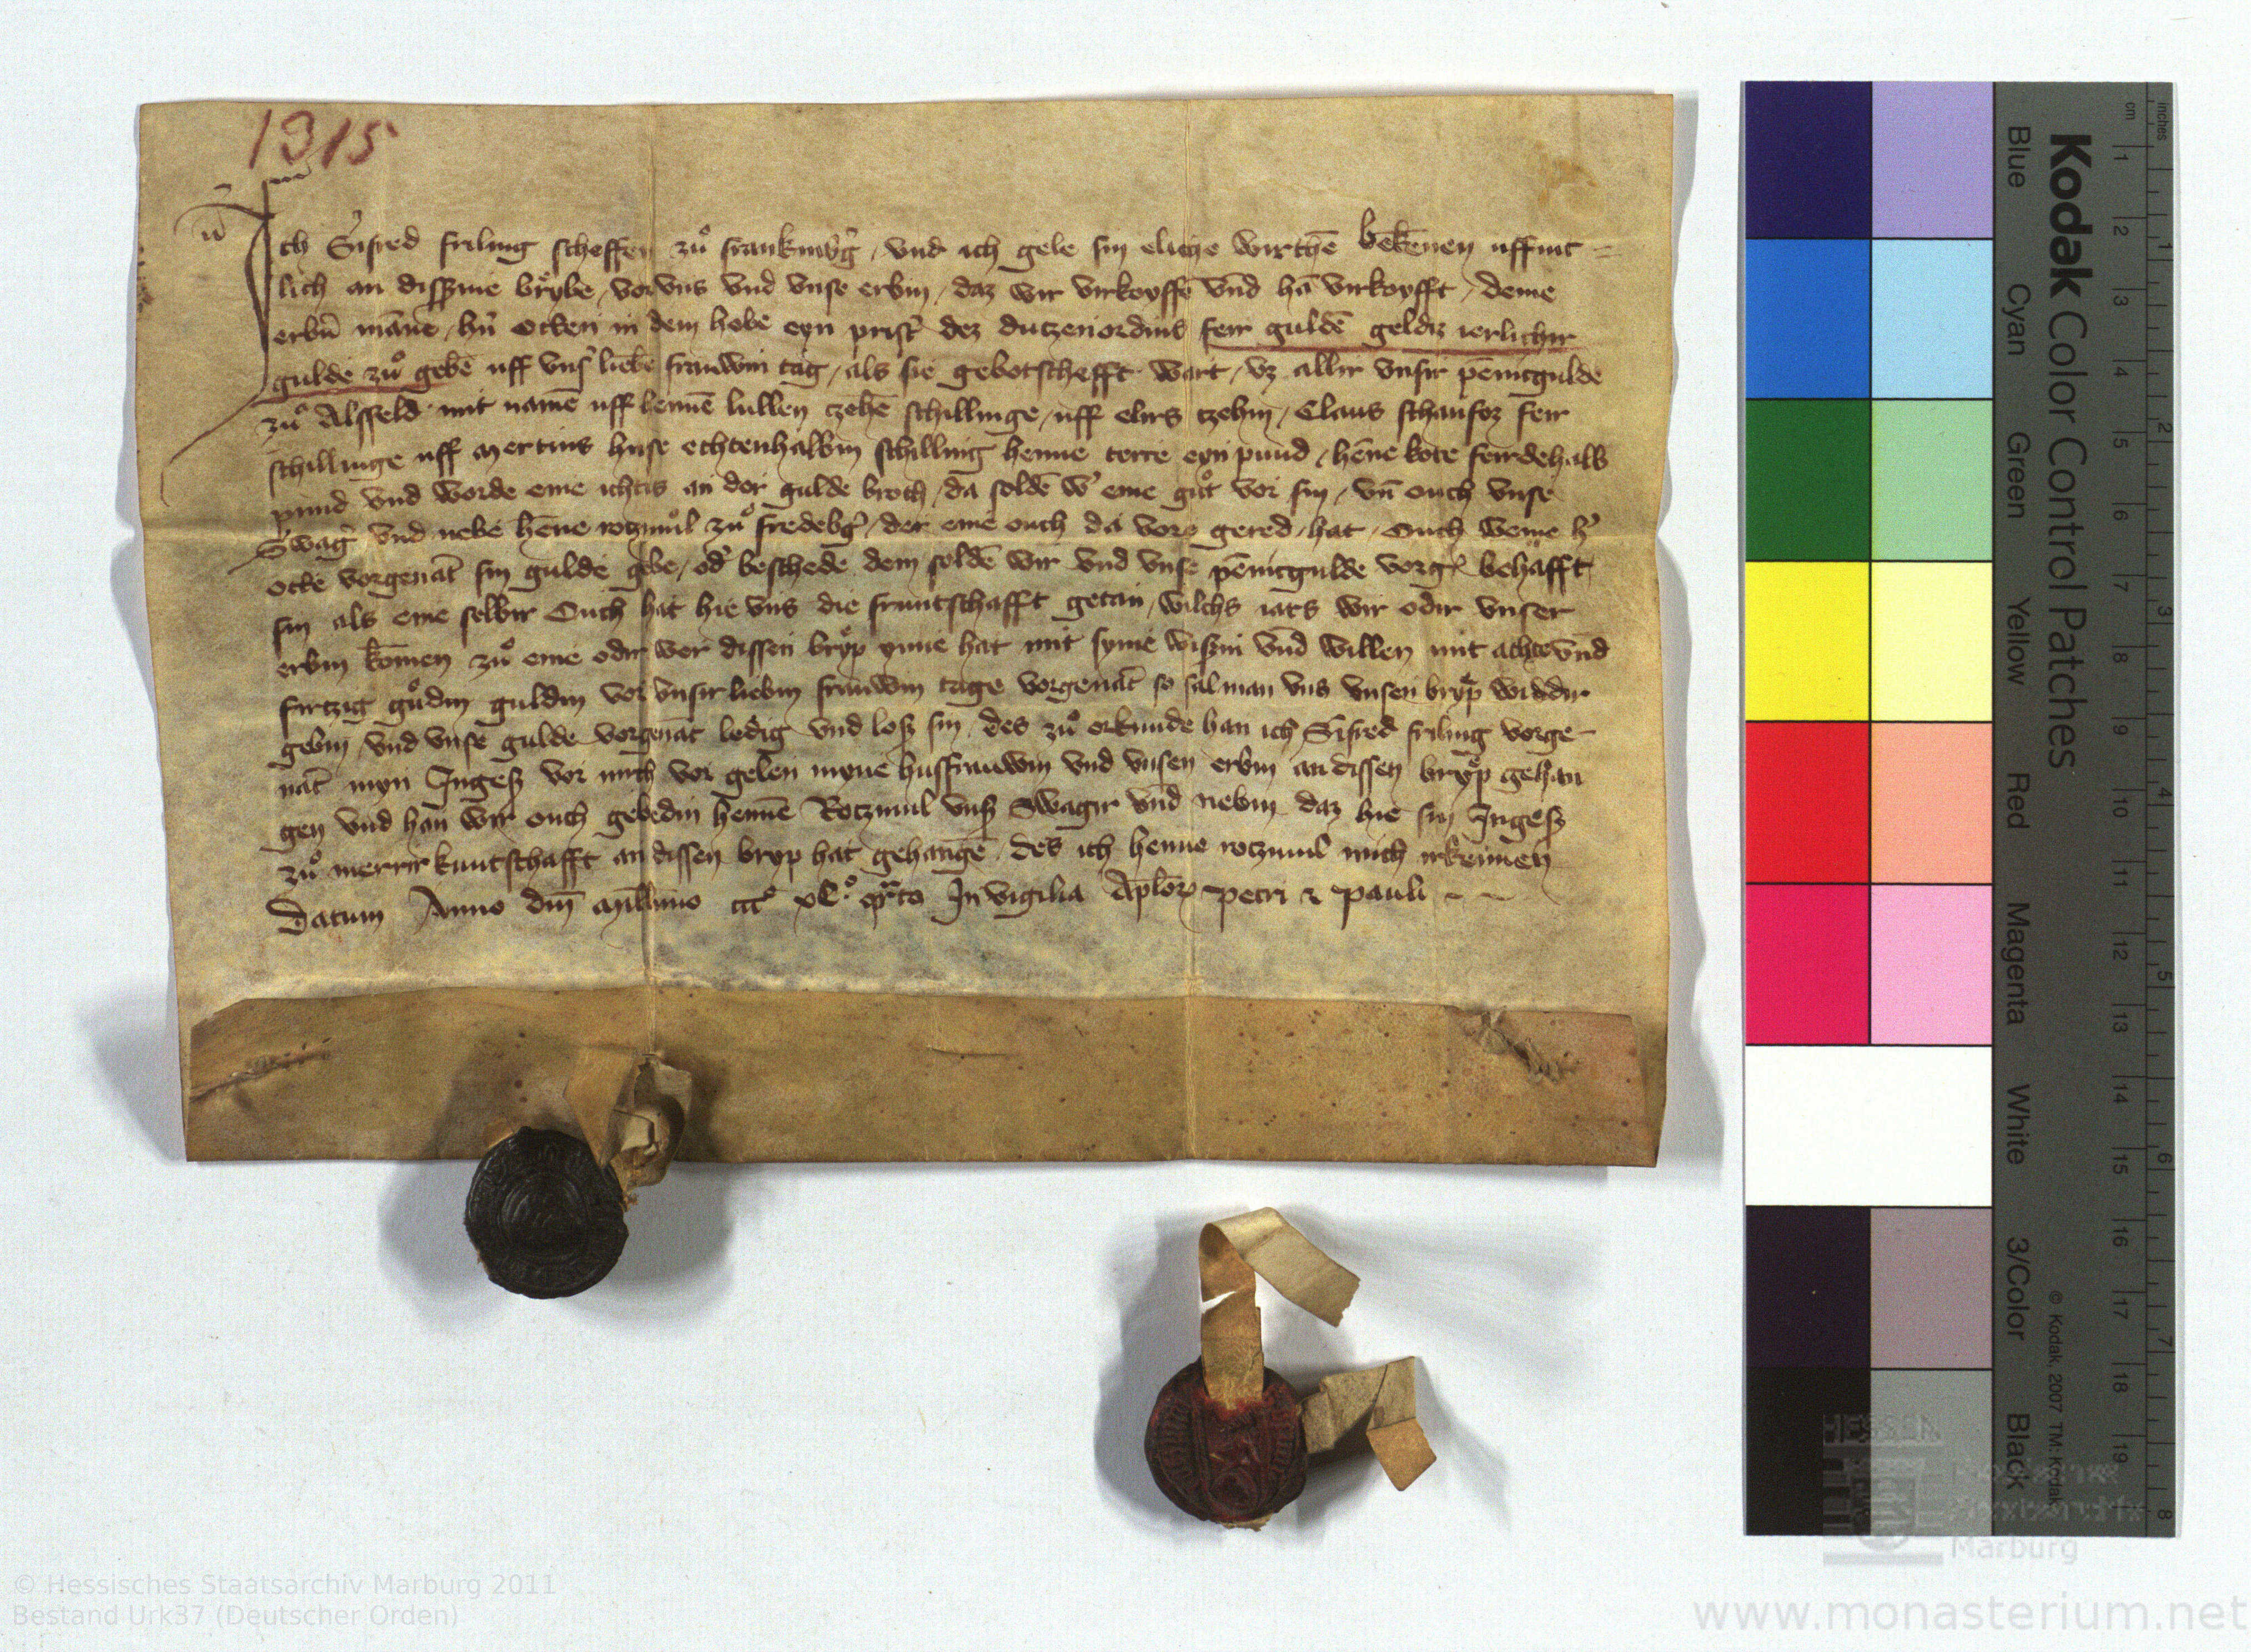 1315
Ich Sifred friling scheffen zuͦ frankinbg̉, vnd ich gele sin eliche wirthē bekēnen uffint=
lich an dissme brybe, vor vns vnd vnse erbin, daz wir virkoyffē vnd hā virkoyfft, deme
erbn̄ māne, hn̄ Ocken in dem hobe eyn prist̉ dez dutzenordins feir guldē geldiz ierlichir
gulde zuͦ gebē uff vns̉ liebē frauwin tag, als sie gebotschefft wart, vz allir vnsir pēnicgulde
zuͦ Alsfeld mit namē uff hennē lullen czehē schillinge, uff elirs czehin, Claus schaufoz feir
schillinge uff mertins huse echtenhalbin schilling henne terre eyn pund, hēne kote feirdehalb
pund vnd worde eme ichtis an der gulde broch, da soldē w̉ eme guͦt vor sin, vn̄ ouch vnse
Swag̉ vnd nebe hēne rotzmul zuͦ fredebg̉, der eme ouch da vore gered hat, Ouch weme h̉
ocke vorgenāt sin gulde gebe, od̉ beschede dem soldē wir vnd vnse pēnicgulde vorg̉ behafft
sin als eme selbir Ouch hat hie vns die fruntschafft getan, wilchs iars wir odir vnser
erbin komen zuͦ eme odir wer dissen bryp ynne hat mit syme wiszin vnd willen mit achtevnd
firtzig guͦdin guldin vor vnsir liebin frauwin tage vorgenāt so sal man vns vnsen bryp widdir
gebin, vnd vnse gulde vorgenāt ledig vnd losz sin, des zuͦ orkunde han ich Sifred friling vorge-
nāt myn Ingesz vor mich vor gelen myne husfrauwin vnd vnsen erbin an dissen bryp gehan
gen vnd han wir ouch gebedin hennē Rotzmul vnsz Swagir vnd nebin daz hie sin Ingesz
zuͦ merrir kuntschafft an dissen bryp hat gehangē, des ich henne rotzmul mich irkennen
Datum Anno dn̄i millīmo cccͦ xlͦ qͣrto In vigilia Apl̄orꝝ petri ⁊ pauli
Kodak Color Control Patches
Blue Cyan Green Yellow Red Magenta White 3/Color Black
© Kodak, 2007 TM: Kodak
inches 1 2 3 4 5 6 7 8
cm 1 2 3 4 5 6 7 8 9 10 11 12 13 14 15 16 17 18 19
HESSEN
Hessisches
Staatsarchiv
Marburg
© Hessisches Staatsarchiv Marburg 2011
Bestand Urk37 (Deutscher Orden)
www.monasterium.net